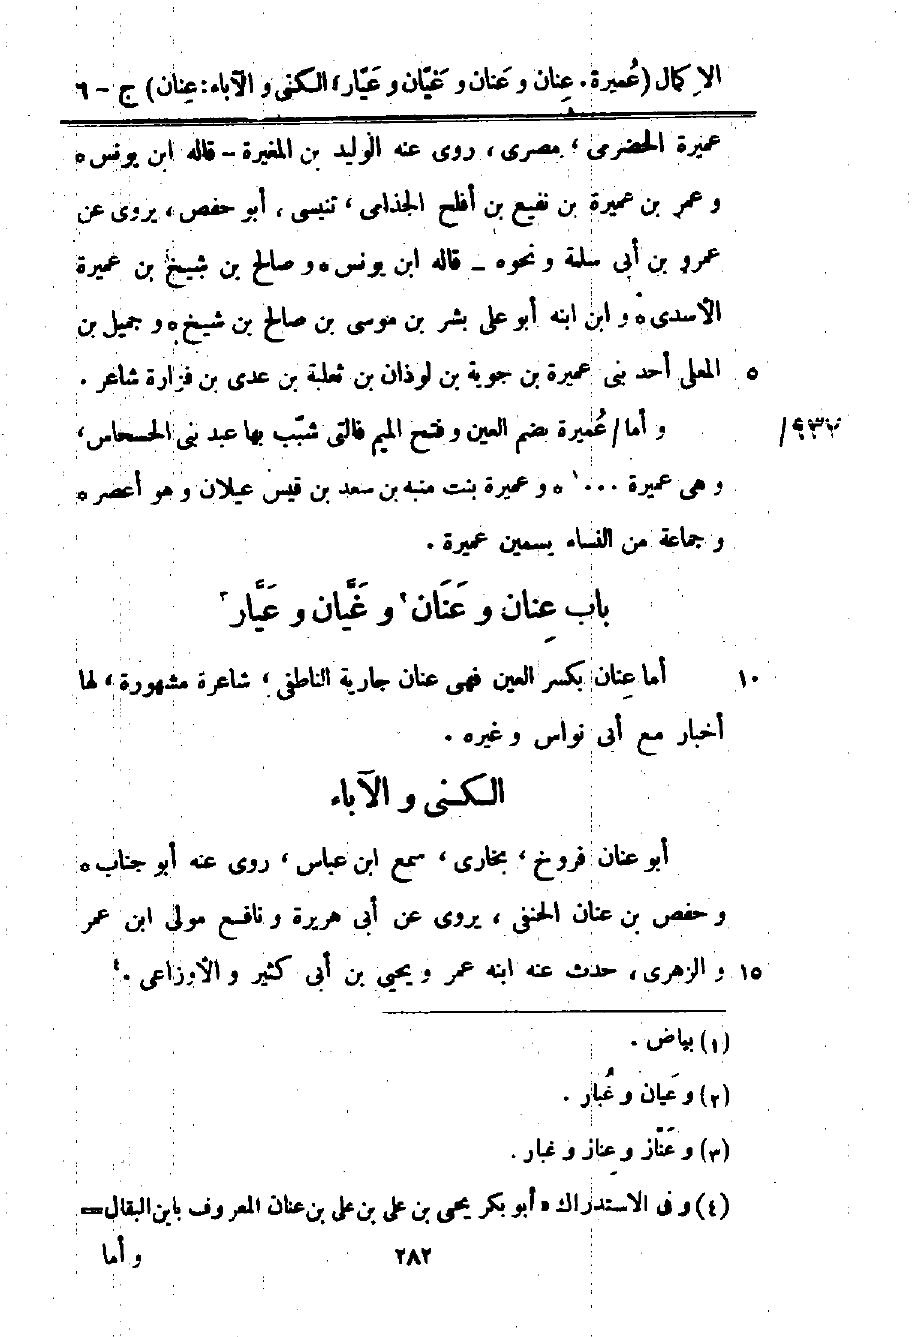 الإكمال (عُميرة. عِنان و عَنان و غَيّان و عَيّار، الكنى و الآباء: عِنان) ج - ٦
عميرة الحضرمى، مصرى، روى عنه الوليد بن المغيرة - قاله ابن يونس ه
و عمر بن عميرة بن نفيع بن أفلح الجذامى، تنيسى، أبو حفص، يروى عن
عمرو بن أبى سلمة و نحوه - قاله ابن يونس ه و صالح بن شيخ بن عميرة
الأسدى ه و ابن ابنه أبو على بشر بن موسى بن صالح بن شيخ ه و جميل بن
٥ المعلى أحد بنى عميرة بن جوية بن لوذان بن ثعلبة بن عدى بن فزارة شاعر .
٩٣٧/ و أما / عُميرة بضم العين و فتح الميم فالتى شبّب بها عبد بنى الحسحاس،
و هى عميرة ...١ ه و عميرة بنت منبه بن سعد بن قيس عيلان و هو أعصر ه
و جماعة من النساء يسمين عميرة .
باب عِنان و عَنَان٢ و غَيَّان و عَيَّار٣
١٠ أما عِنان بكسر العين فهى عنان جارية الناطفى، شاعرة مشهورة، لها
أخبار مع أبى نواس و غيره .
الكنى و الآباء
أبو عنان فروخ، بخارى، سمع ابن عباس، روى عنه أبو جناب ه
و حفص بن عنان الحنفى، يروى عن أبى هريرة و نافع مولى ابن عمر
١٥ و الزهرى، حدث عنه ابنه عمر و يحيى بن أبى كثير و الأوزاعى .٤
(١) بياض .
(٢) و عَيان و غُبار .
(٣) و عَنّاز و عِناز و غبار .
(٤) و فى الاستدراك « أبو بكر يحيى بن على بن على بن عنان المعروف بابن البقال=
٢٨٢
و أما